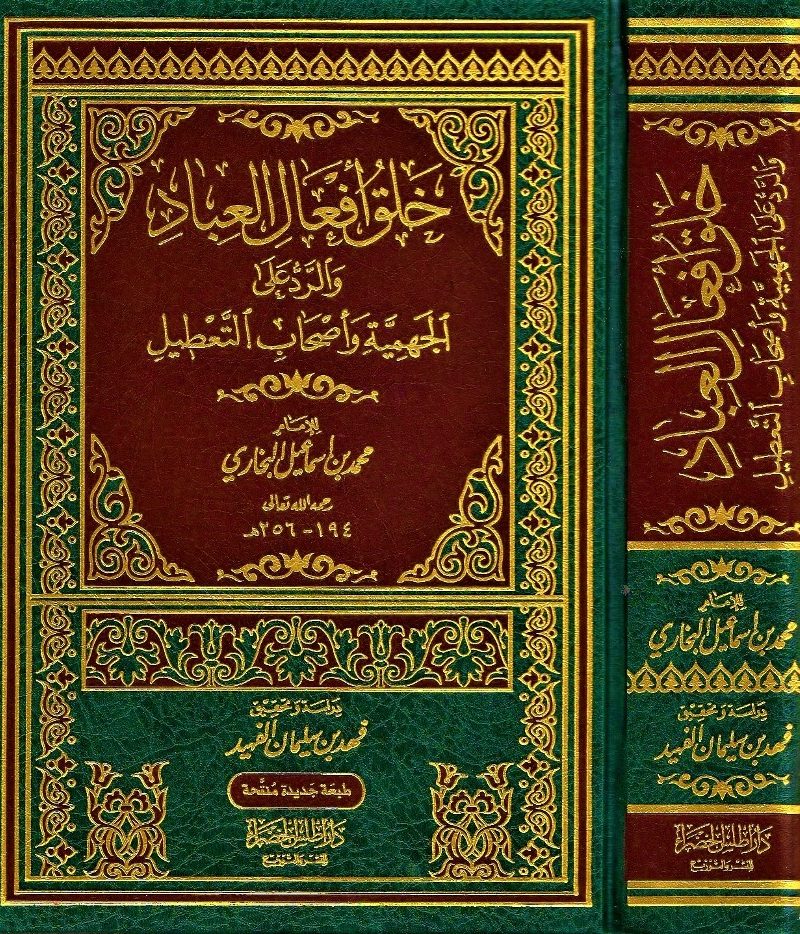 خَلْقُ أَفْعَالِ العِبَادِ
وَالرَّدُّ عَلَى
الجَهْمِيَّةِ وَأَصْحَابِ التَّعْطِيلِ
لِلإِمَامِ
محمد بن إسماعيل البخاري
رحمه الله تعالى
١٩٤ - ٢٥٦هـ
دراسة وتحقيق
فهد بن سليمان الفهيد
طبعة جديدة منقّحة
دار أطلس الخضراء
للنشر والتوزيع
خَلْقُ أَفْعَالِ العِبَادِ
وَالرَّدُّ عَلَى الجَهْمِيَّةِ وَأَصْحَابِ التَّعْطِيلِ
لِلإِمَامِ
محمد بن إسماعيل البخاري
دراسة وتحقيق
فهد بن سليمان الفهيد
دار أطلس الخضراء
للنشر والتوزيع